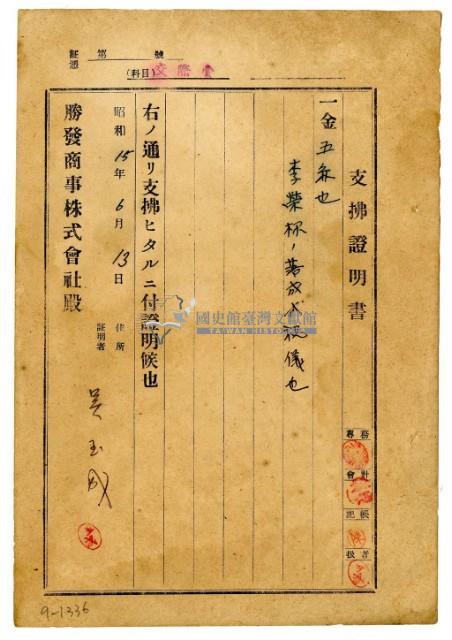 支拂證明書
一金五円也
李榮杯ノ落成式祝儀也
右ノ通リ支拂ヒタルニ付證明候也
昭和15年6月13日
住所
証明者
吳玉成
勝發商事株式會社殿
証憑 第 號
(科目) 交際費
專務
會計
記帳
扱者
國史館臺灣文獻館
TAIWAN HISTORICA
9-1336